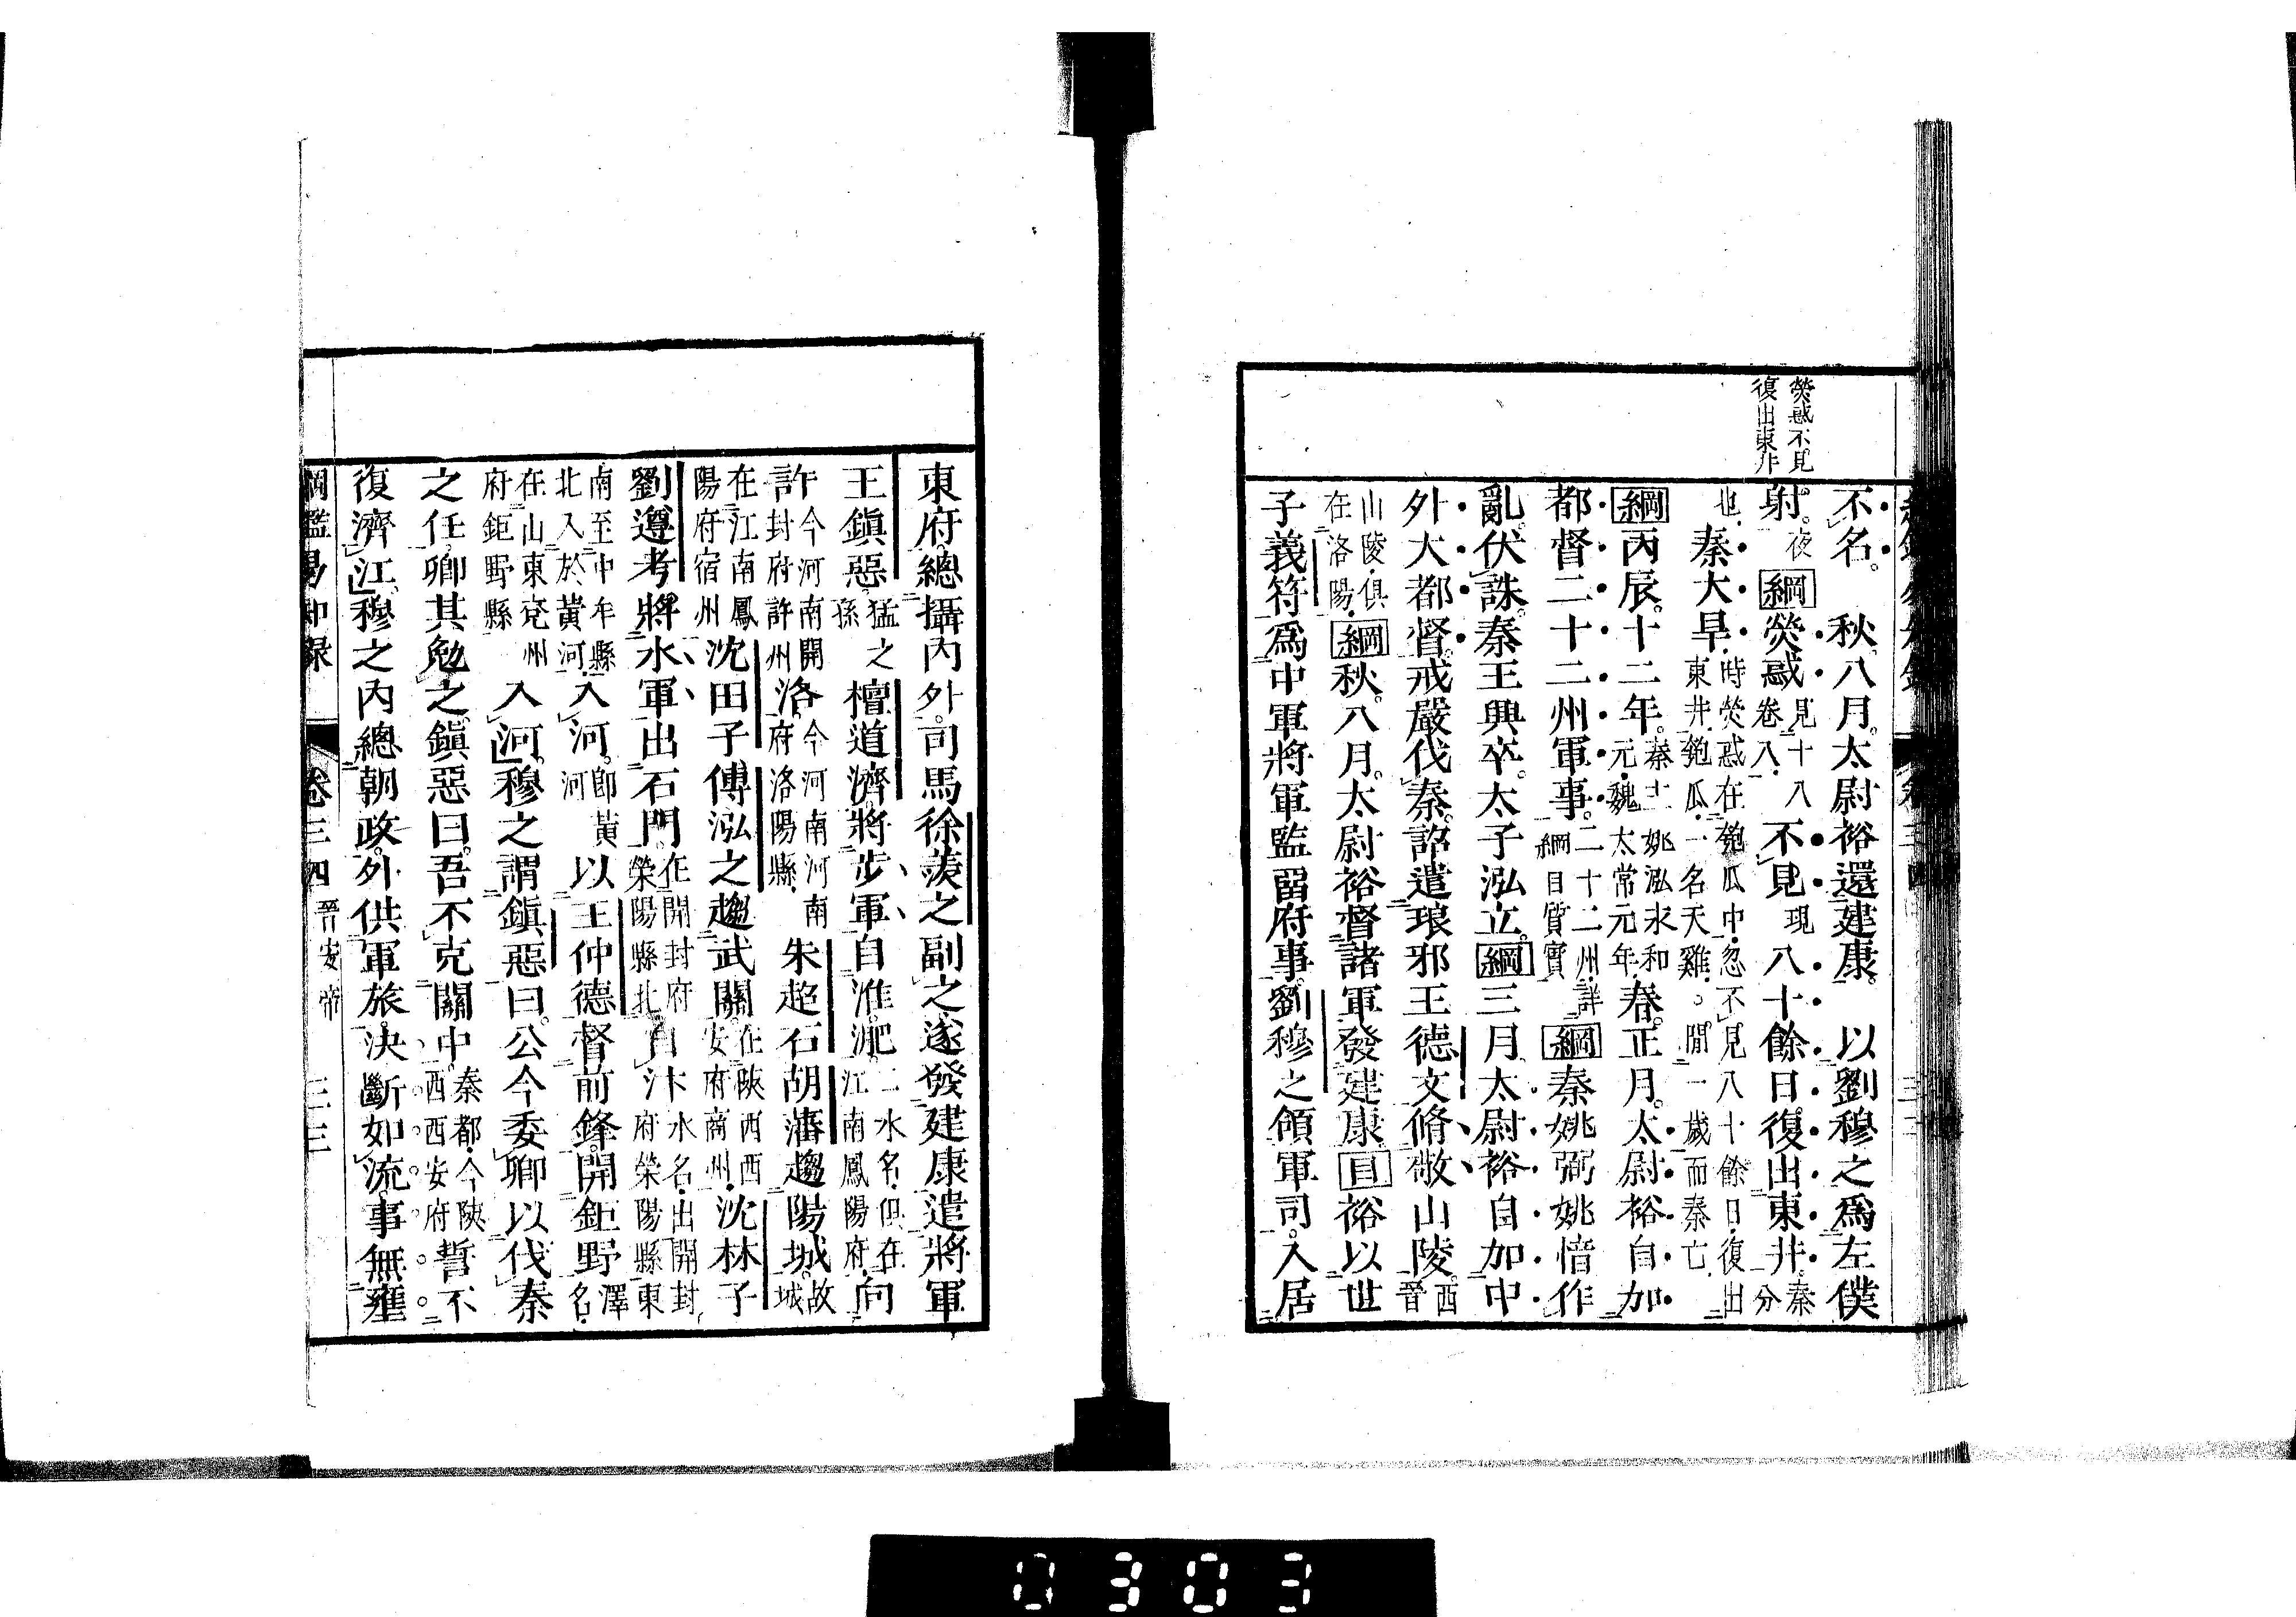 熒惑不見
復出東井
不名。秋八月。太尉裕還建康。以劉穆之爲左僕
射。夜綱熒惑見十八卷八不見現八十餘日。復出東井。秦分
也秦大旱。時熒惑在匏瓜中忽不見八十餘日復出東井匏瓜一名天雞。閒一歲而秦亡
綱丙辰。十二年。秦主姚泓永和元魏太常元年春。正月。太尉裕自加
都督二十二州軍事。二十二州詳綱目質實綱秦姚弼姚愔作
亂。伏誅。秦王興卒。太子泓立。綱三月太尉裕自加中
外大都督。戒嚴伐秦。詔遣琅邪王德文脩敬山陵。西晉
山陵俱在洛陽綱秋。八月。太尉裕督諸軍發建康。目裕以世
子義符爲中軍將軍監留府事。劉穆之領軍司。入居
東府。總攝內外。司馬徐羨之副之。遂發建康。遣將軍
王鎭惡。猛之孫檀道濟。將步軍自淮淝。二水名俱在江南鳳陽府向
許今河南開封府許州洛。今河南河南府洛陽縣朱超石胡藩趨陽城。故城
在江南鳳陽府宿州沈田子傅泓之趨武關。在陝西西安府商州沈林子
劉遵考將水軍出石門。在開封府滎陽縣北自汴水名出開封府滎陽縣東
南至中牟縣北入於黃河入河。卽黃河以王仲德督前鋒。開鉅野澤名
在山東兗州府鉅野縣入河。穆之謂鎭惡曰。公今委卿以伐秦
之任。卿其勉之。鎭惡曰。吾不克關中。秦都今陝西西安府誓不
復濟江。穆之內總朝政。外供軍旅。決斷如流。事無壅
卷三四 晉安帝 三三
0303